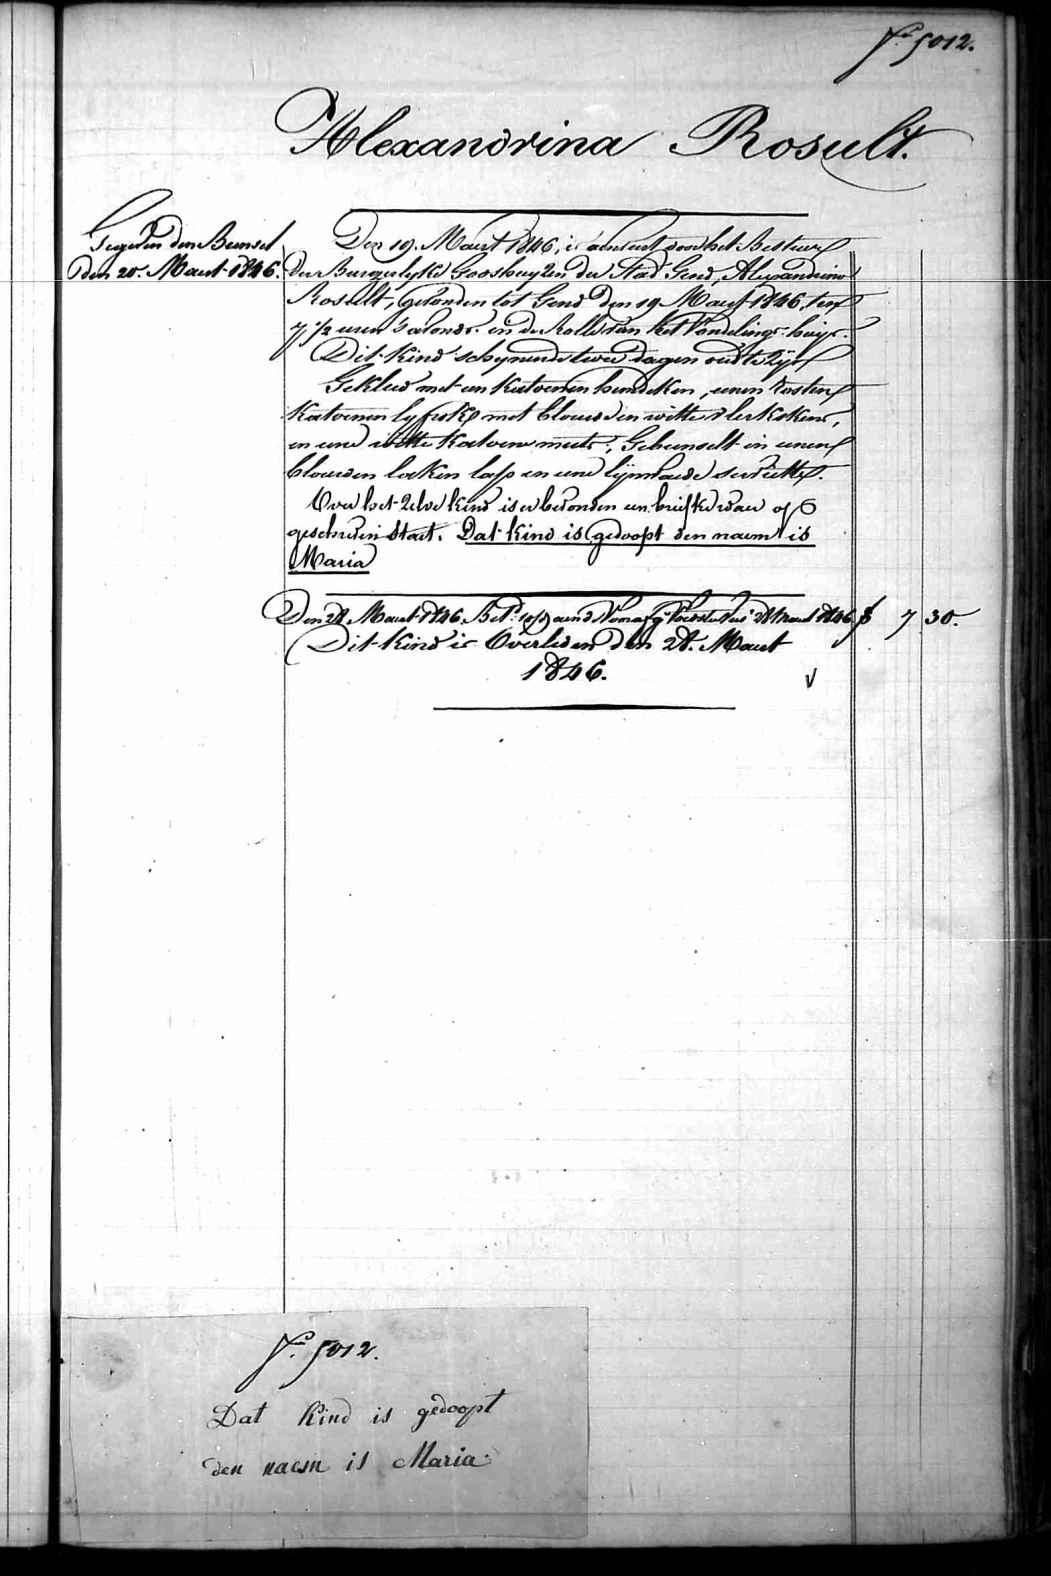 Nº 5012.
Alexandrina Rosult.
Gegeven den Beursel
den 20. Maert 1846.
Den 19. Maert 1846, is door het Bestier
der Burgerlyke Godshuyzen der Stad Gend, Alexandrina
Rosult, gevonden tot Gend den 19 Maert 1846, ten
7 1/2 uren 's avonds in de Rolle van het Vondelings-huys.
Dit kind schynende twee dagen oud te zyn
Gekleed met een katoenen hemdeken, eenen rosten
katoenen lyfrok met blauwe en witte vlerkskens,
en eene witte katoene muts, Gebunselt in eenen
blauwen laken lap en eene lynwaede serviette.
Over het zelve kind is er bevonden een briefke waer op
geschreven staet. Dat kind is gedoopt den naem is
Maria
Den 28 Maert 1846. 28 Maert 1846 7 30.
Dit kind is Overleden den 28. Maert
1846.
Nº 5012.
Dat kind is gedoopt
den naem is Maria